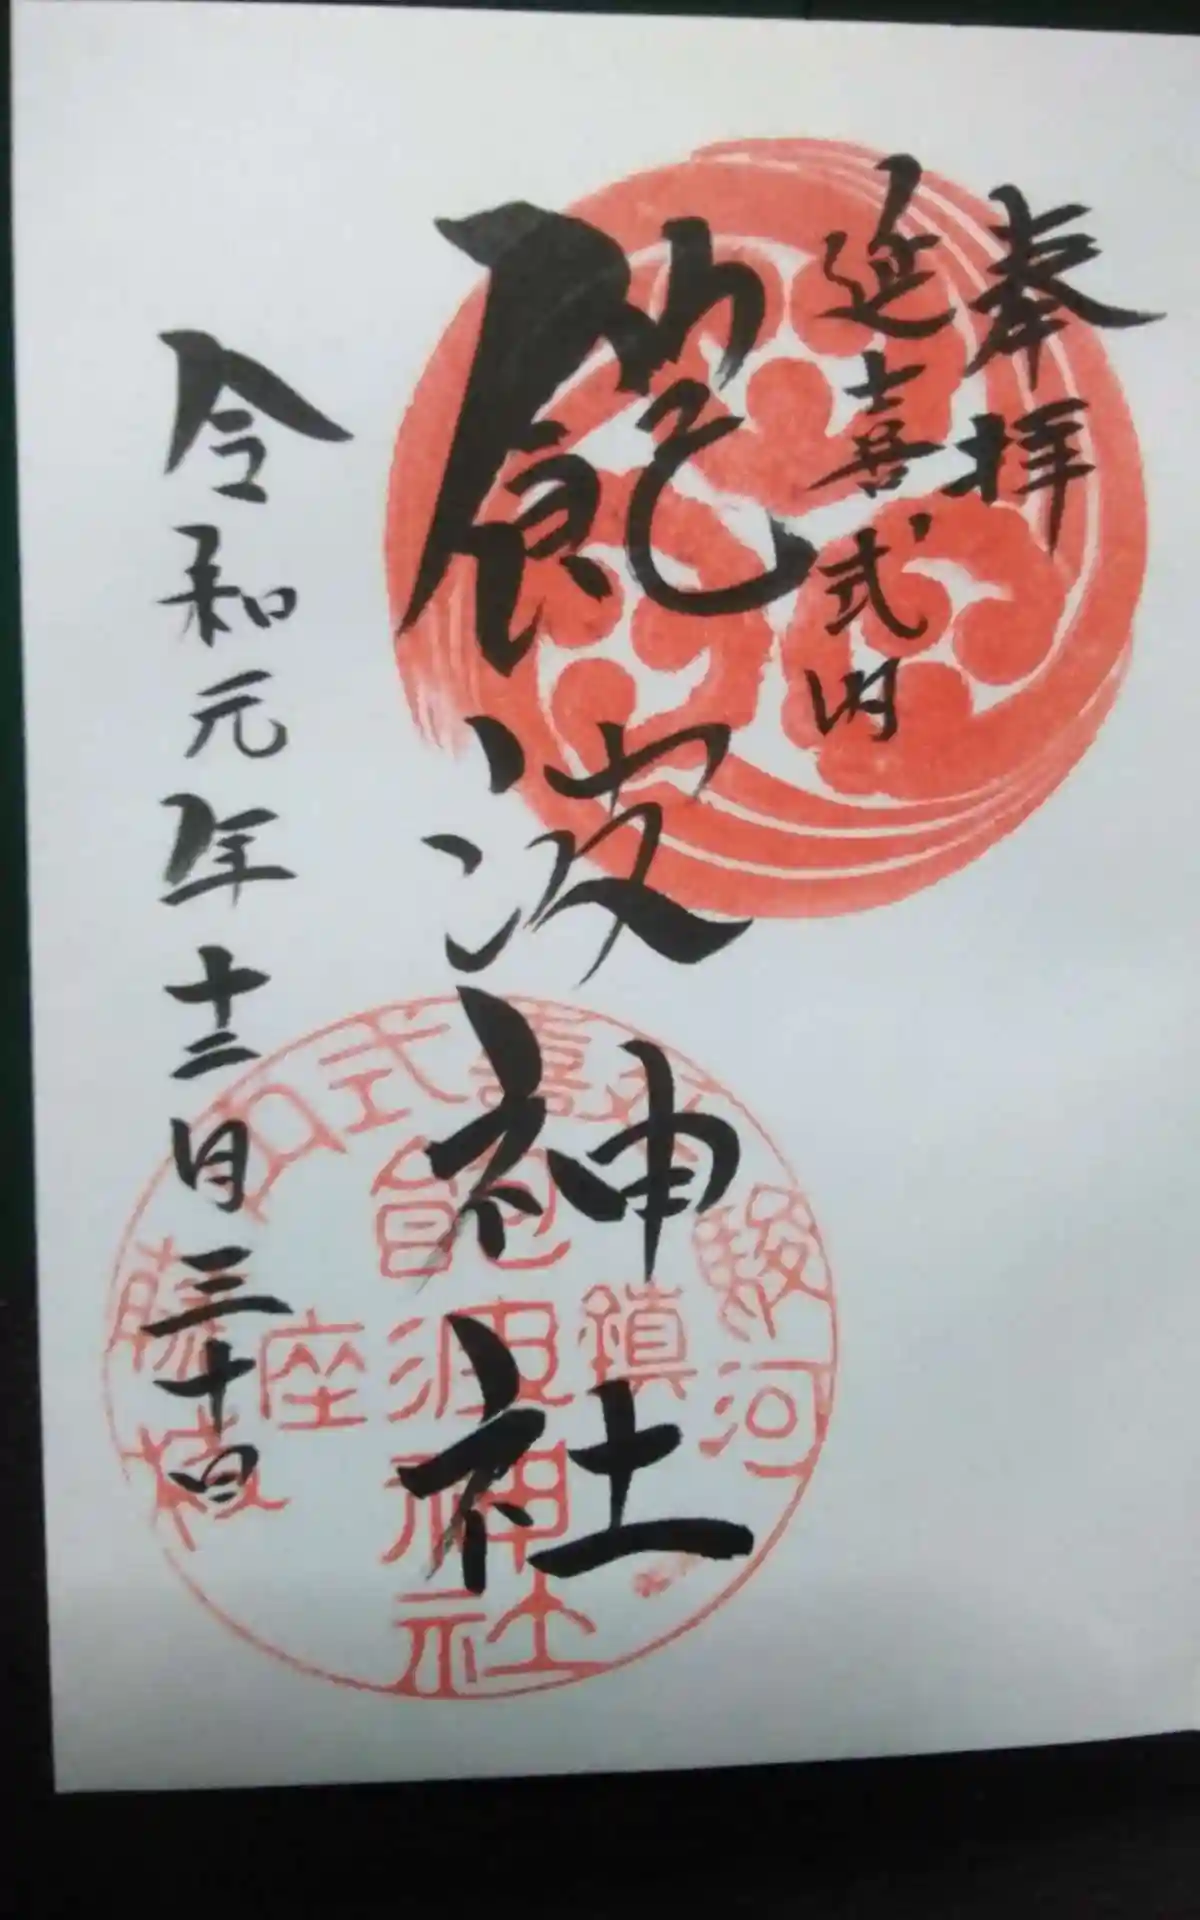 奉拝
延喜式内
飽波神社
令和元年十二月三十日
駿河
延喜式内
藤枝
鎮座
飽波神社